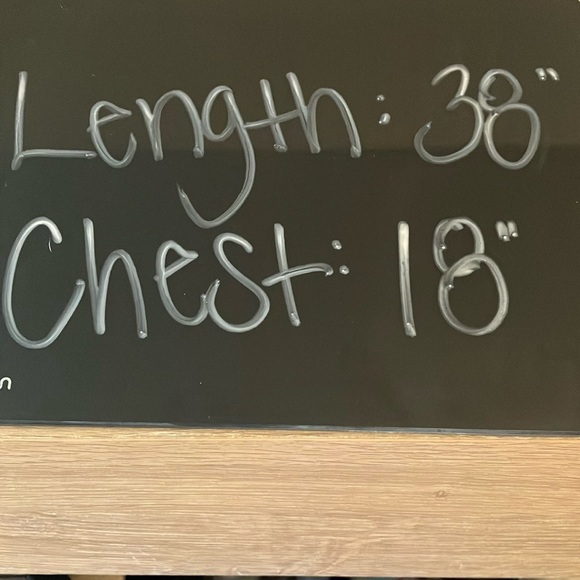 Length: 38"
Chest: 18"
n